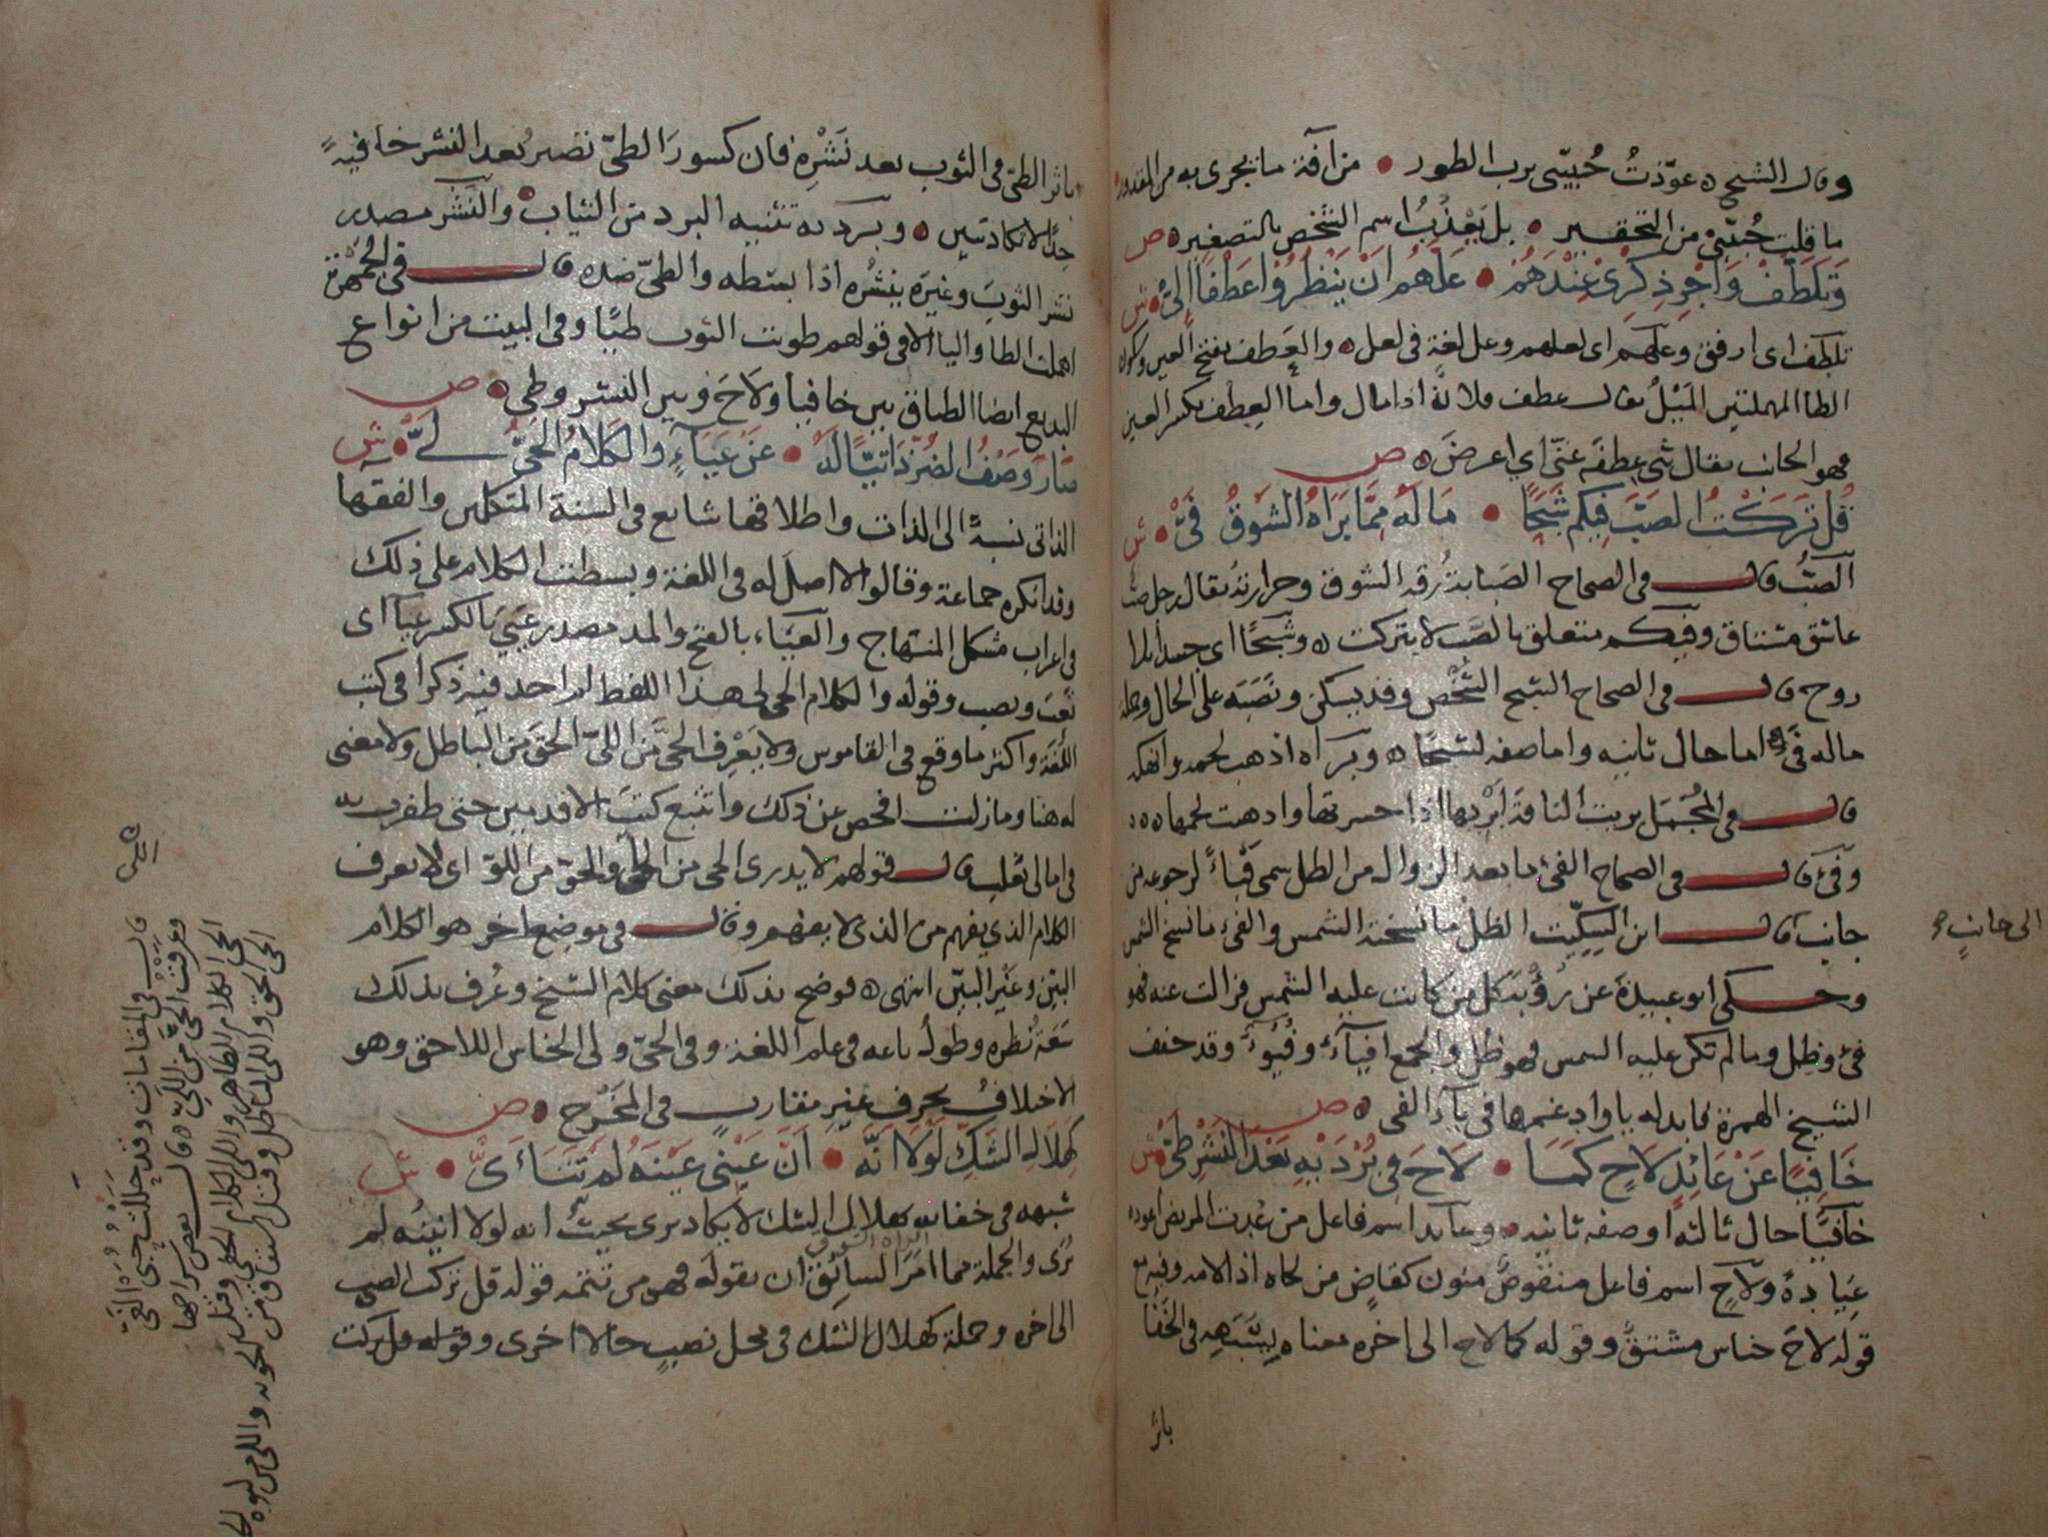 وقال الشيخ عوّذتُ حُبيّبى برب الطور • من آفة ما يجرى به من المقدور
ما قلت حُبيّبى من التحقير • بل يَعْذُبُ اسم الشخص بالتصغير ص
وَتَلَطَّفْ وَاَجْرِ ذِكْرِىْ عِنْدَهُمْ • عَلَّهُم اَنْ يَنْظُرُوْا عَطْفًا اِلَىّْ • ش
تلطف اى ارفق وعلّهم اى لعلهم وعل لغة فى لعل والعَطف بفتح العين وسكون
الطا المهملتين المَيْلُ يقال عطف فلانة اذا مال واما العِطف بكسر العين
فهو الجانب يقال ثنى عِطفَه عنّى اي اعرضَ ص
قُل تَرَكْتُ الصَبَّ فِيكم شَبَحًا • مَا لَهُ مِمَّا بَرَاهُ الشَوقُ فَىّْ • ش
الصَبُّ قال فى الصحاح الصَبابة رقة الشوق وحرارته يقال رجل صب
عاشق مشتاق وفيكم متعلق بالصَب لا بتركت وشَبَحًا اى جسدا بلا
روح قال فى الصحاح الشبح الشَخْص وقد يسكن ونَصَبَه على الحال وجملة
ماله فَىّ اما حال ثانيه واما صفه لشبحًا وبَرَاه اذهب لحمه وانهكه
قال فى المُجْمَل بريت الناقة اَبْرِيها اذا حسرتها واذهبت لحمها
وَفَىْ قال فى الصحاح الفئ ما بعد الزوال من الظل سمى فَيْأً لرجوعه من
جانب قال ابن السِكِّيت الظل ما نسخته الشمس والفئ ما نسخ الشمس
الى جانبٍ
وحكى ابو عبيدة عن رؤبة كل من كانت عليه الشمس فزالت عنه فهو
فئ وظل وما لم تكن عليه الشمس فهو ظل والجمع افيآء وفُيُوء وقد خفف
الشيخ الهمزة بابداله يا وادغمها فى ياء الفى ص
خَافِيًا عَنْ عَائِدٍ لَاحٍ كَمَا • لَاحَ فِى بُرْدَيْهِ بَعْدَ النَشْرِ طَىّْ • ش
خافيًا حال ثالثة او صفه ثانيه وعآيد اسم فاعل من عُدت المريض اعوده
عِيادةً ولَاحٍ اسم فاعل منقوصٌ منون كقاضٍ من لحاه اذا لامه وفيه مع
قوله لَاحَ جناس مشتقّ وقوله كما لاح الى اخره معناه يشبَهه فى الخَفَا
باثر
باثر الطىّ فى الثوب بعد نَشْرِه فان كسور الطىّ تصير بعد النشر خافيةً
جدًّا لا تكاد تبين وبُرديه تثنيه البرد من الثياب والنَشْر مصدر
نشر الثوبَ وغيرَه ينشُره اذا بسطه والطىّ ضده قال فى الجَمْهَرَة
اهملت الطا واليا الا فى قولهم طويت الثوب طيًّا وفى البيت من انواع
البديع ايضا الطباق بين خافيا ولَاحَ وبين النشر وطى ص
صَارَ وَصْفُ الضُرِّ ذَاتِيًّا لَهُ • عَنْ عَيَاءٍ وَالكَلامُ الحَىُّ لَىّْ • ش
الذاتى نسبةً الى الذات واطلاقها شايع فى السنة المتكلمين والفقها
وقد انكره جماعة وقالوا لا اصل له فى اللغة وبسطت الكلام على ذلك
فى اعراب مشكل المنهاج والعَيَاء بالفتح والمد مصدر عَيِىَ بالكسر عيآ اى
تَعِبَ ونصب وقوله والكلام الحى لى هذا اللفظ لم اجد فيه ذكرا فى كتب
اللغة واكثر ما وقع فى القاموس ولا يَعْرِف الحىَّ من اللىّ الحق من الباطل ولا معنى
له هنا وما زلت افحص عن ذلك واتتبع كتبَ الاقدمين حتى ظفرت به
فى امالى ثعلب قال قولهم لا يدرى الحى من اللى والحَوّ من اللوّ اى لا يعرف
الكلام الذي يفهم من الذى لا يفهم وقال فى موضع اخر هو الكلام
البيّن وغَيْر البيّن انتهى فوضح بذلك معنى كلام الشيخ وعُرف بذلك
سَعَة نظره وطول باعه فى علم اللغة وفى الحىّ ولى الجناس اللاحق وهو
الاختلافُ بحرفٍ غير متقارب فى المَخْرَج ص
كَهِلَالِ الشَكِّ لَوْلَا اَنَّهُ • اَنَّ عَيْنِى عَيْنَهُ لَمْ تَتَأَىّْ • ش
شبهه فى خفائه بهلال الشك لا يكاد يرى بحيث انه لولا انينُه لم
يُرَى والجملة مما امَرَ السائِق ان يقوله فهو من تتمه قوله قل تركت الصب
الى اخره وجملة كهلال الشك فى محل نصبٍ حالا اخرى وقوله قل تركت
قال فى المقامات وقد حللت حبى
وعرفت الحىّ من اللىّ قال بعض شراحها
الحى الكلام الظاهر واللى الكلام الخفى وقيل
الحى الحق واللى الباطل وقيل